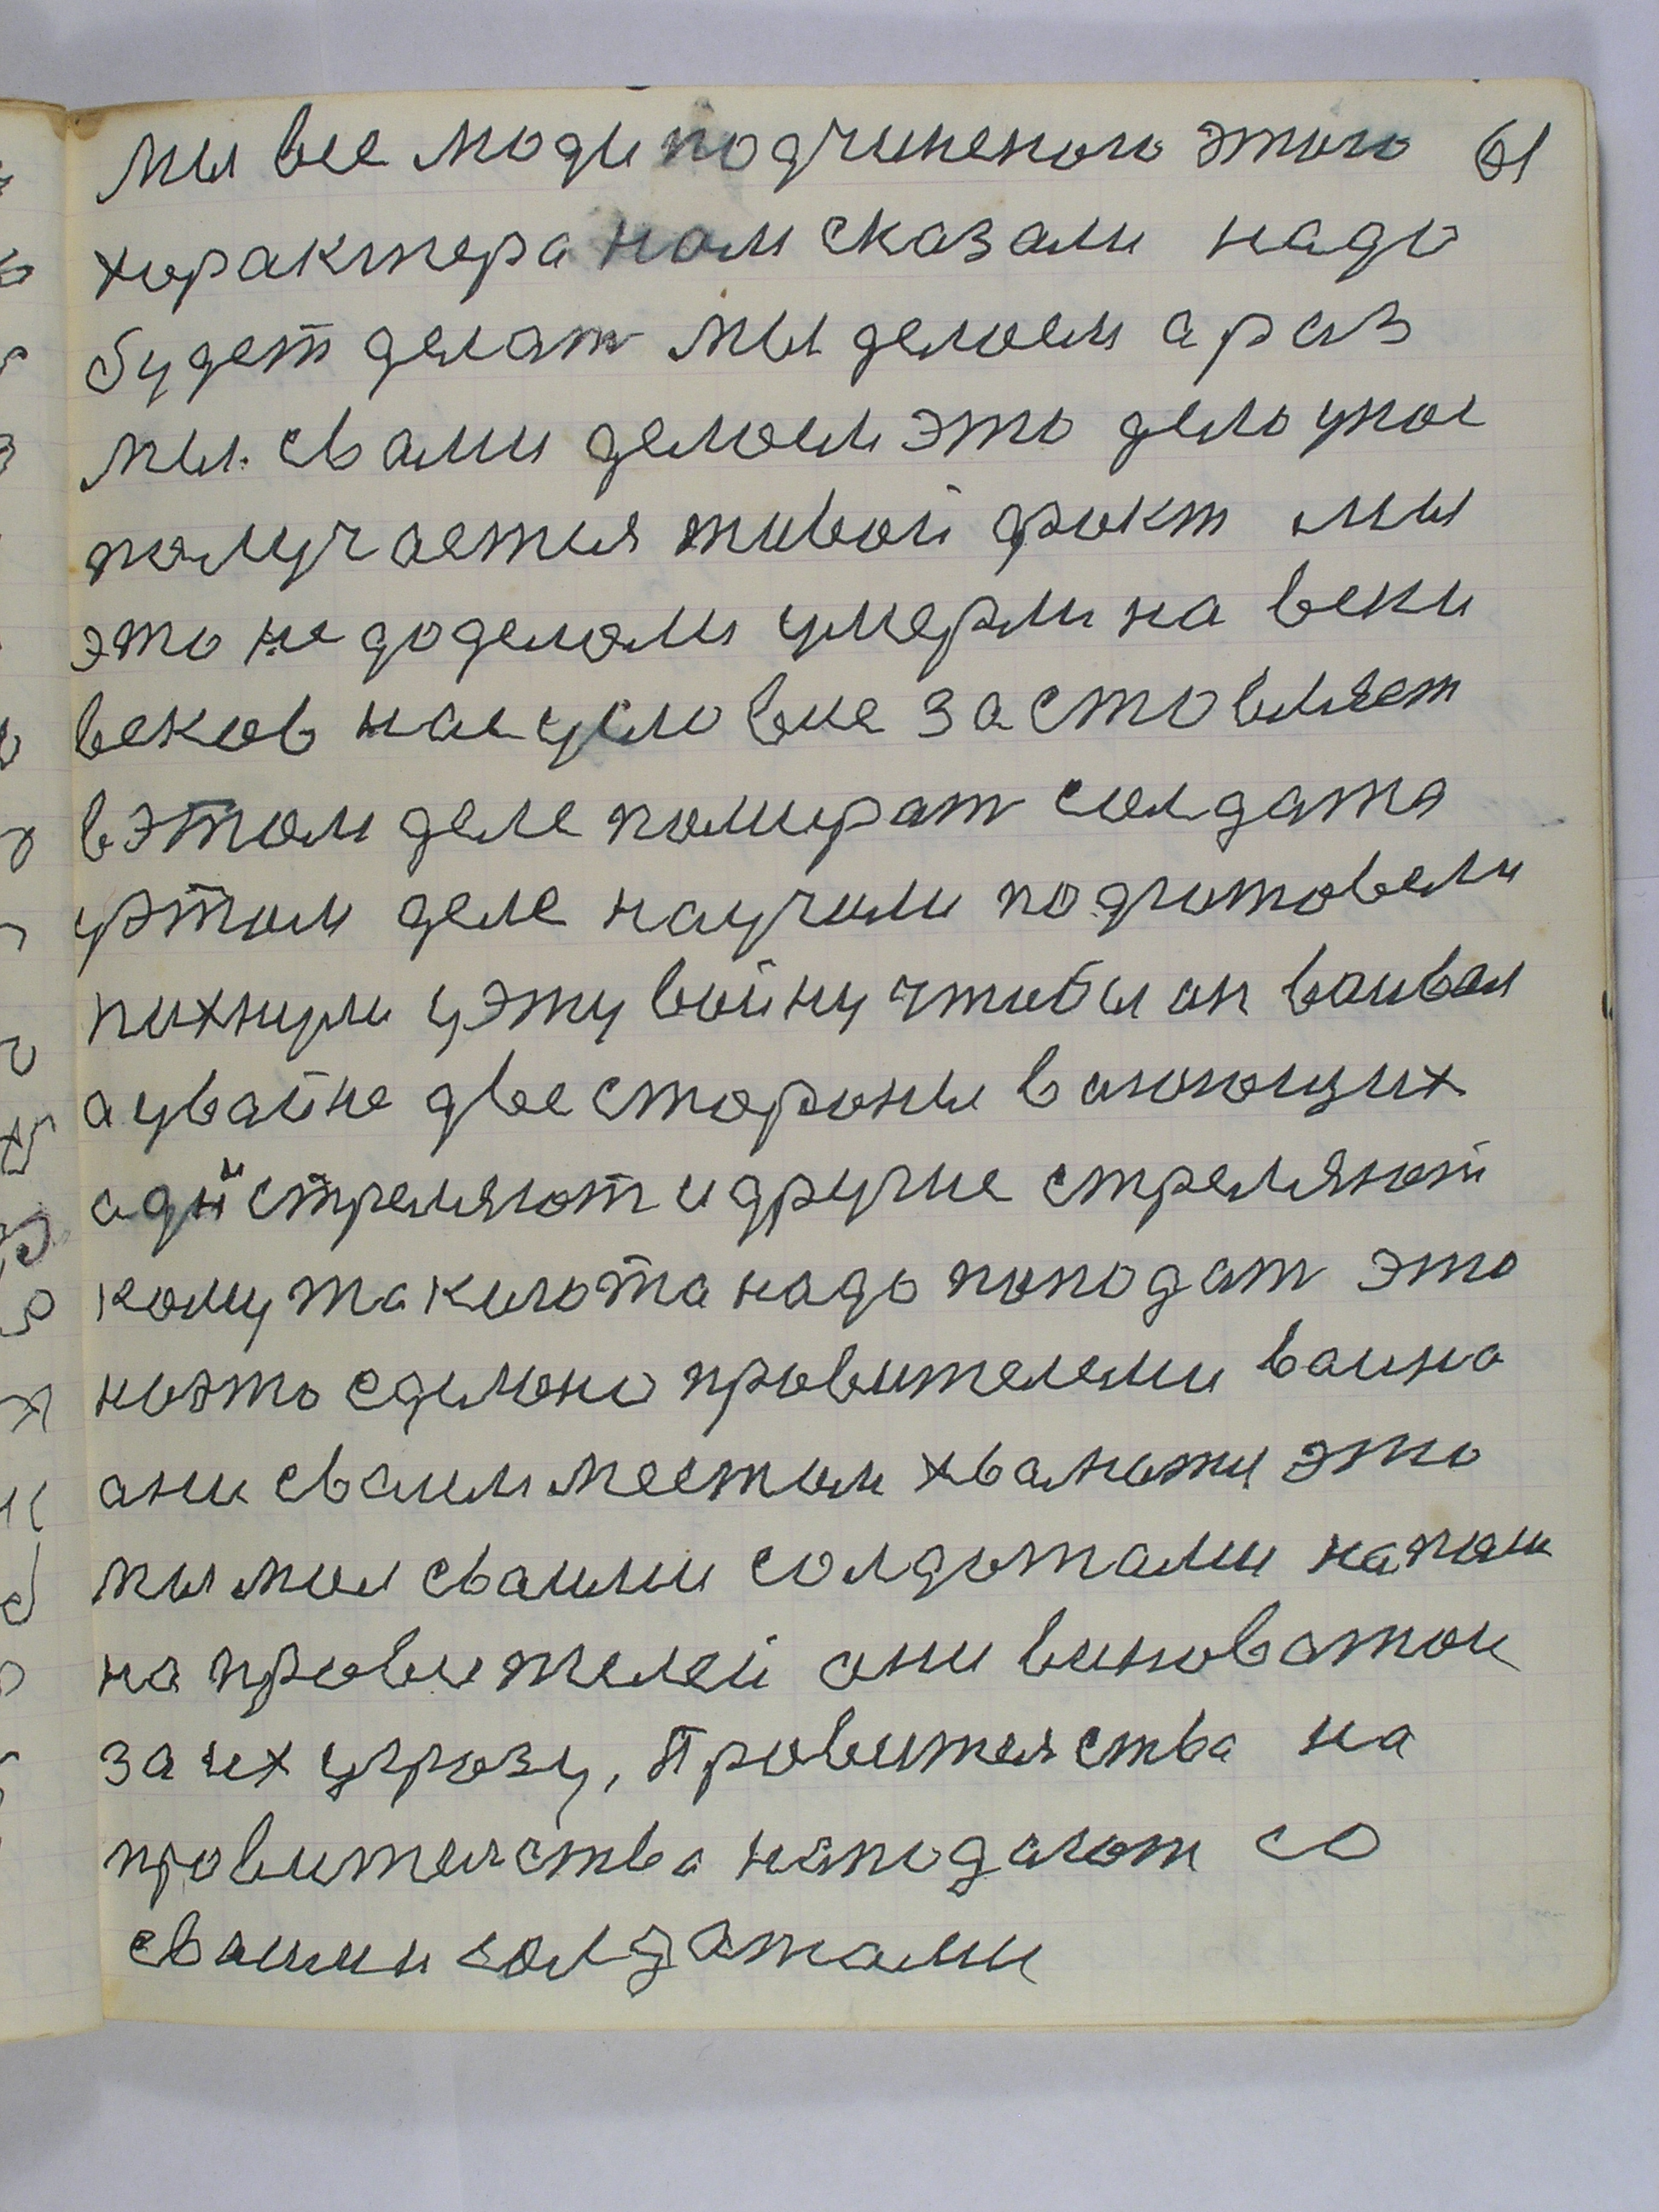 мы все люди подчиненого этого 61
характера нам сказали надо
будет делат мы делаем а раз
мы свами делаем это дело унас
получается тивой факт мы
это не доделали умерли на веки
веков нас условие заставляет
вэтом деле помират солдата
уэтом деле научили подготовели
пихнули уэту войну чтобы он воивал
аувайне две стороны ваюющих
адни стреляют идругие стреляют
кому та кагота надо поподат это
ностъ сделоно правителеми ваина
ани сваим местом хвалюти это
мы мол сваими солдатами напали
на правителей они виноватои
за их угрозу, Правителства на
правителства нападают со
сваими солдатами